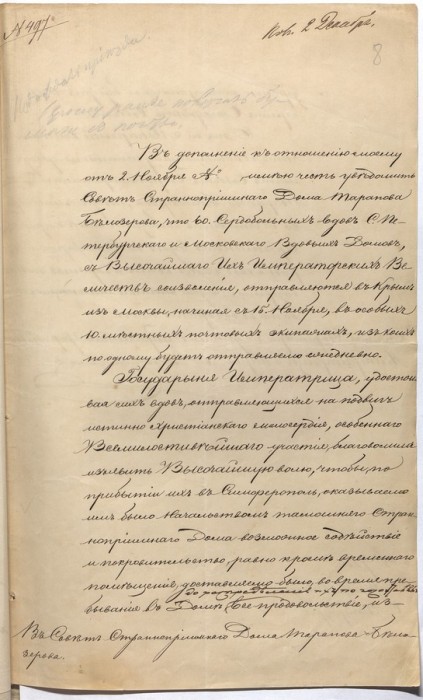 № 497.
Пол. 2 Декабря.
8
Въ дополненіе къ отношенію моему
отъ 2. Ноября №, имѣю честь увѣдомить
Совѣтъ Страннопріимнаго Дома Таранова
Бѣлозерова, что 60. Сердобольныхъ вдовъ С. Пе-
тербургскаго и Московскаго Вдовьихъ Домовъ,
съ Высочайшаго Ихъ Императорскихъ Ве-
личествъ соизволенія, отправляются въ Крымъ
изъ Москвы, начиная съ 15. Ноября, въ особыхъ
10. мѣстныхъ почтовыхъ экипажахъ, изъ коихъ
по одному будетъ отправляемо ежедневно.
Государыня Императрица, удостои-
вая сихъ вдовъ, отправляющихся на подвигъ
истинно Христіанскаго милосердія, особеннаго
Всемилостивѣйшаго участія, благоволила
изъявить Высочайшую волю, чтобы, по
прибытіи ихъ въ Симферополь, оказываемо
имъ было Начальствомъ тамошняго Стран-
нопріимнаго Дома возможное содѣйствіе
и покровительство, равно кромѣ временнаго
помѣщенія, доставляемо было, во время пре-
до распредѣленія ихъ по
быванія въ Домѣ Ее продовольствіе, из-
Въ Совѣтъ Страннопріимнаго Дома Таранова-Бѣло-
зерова.